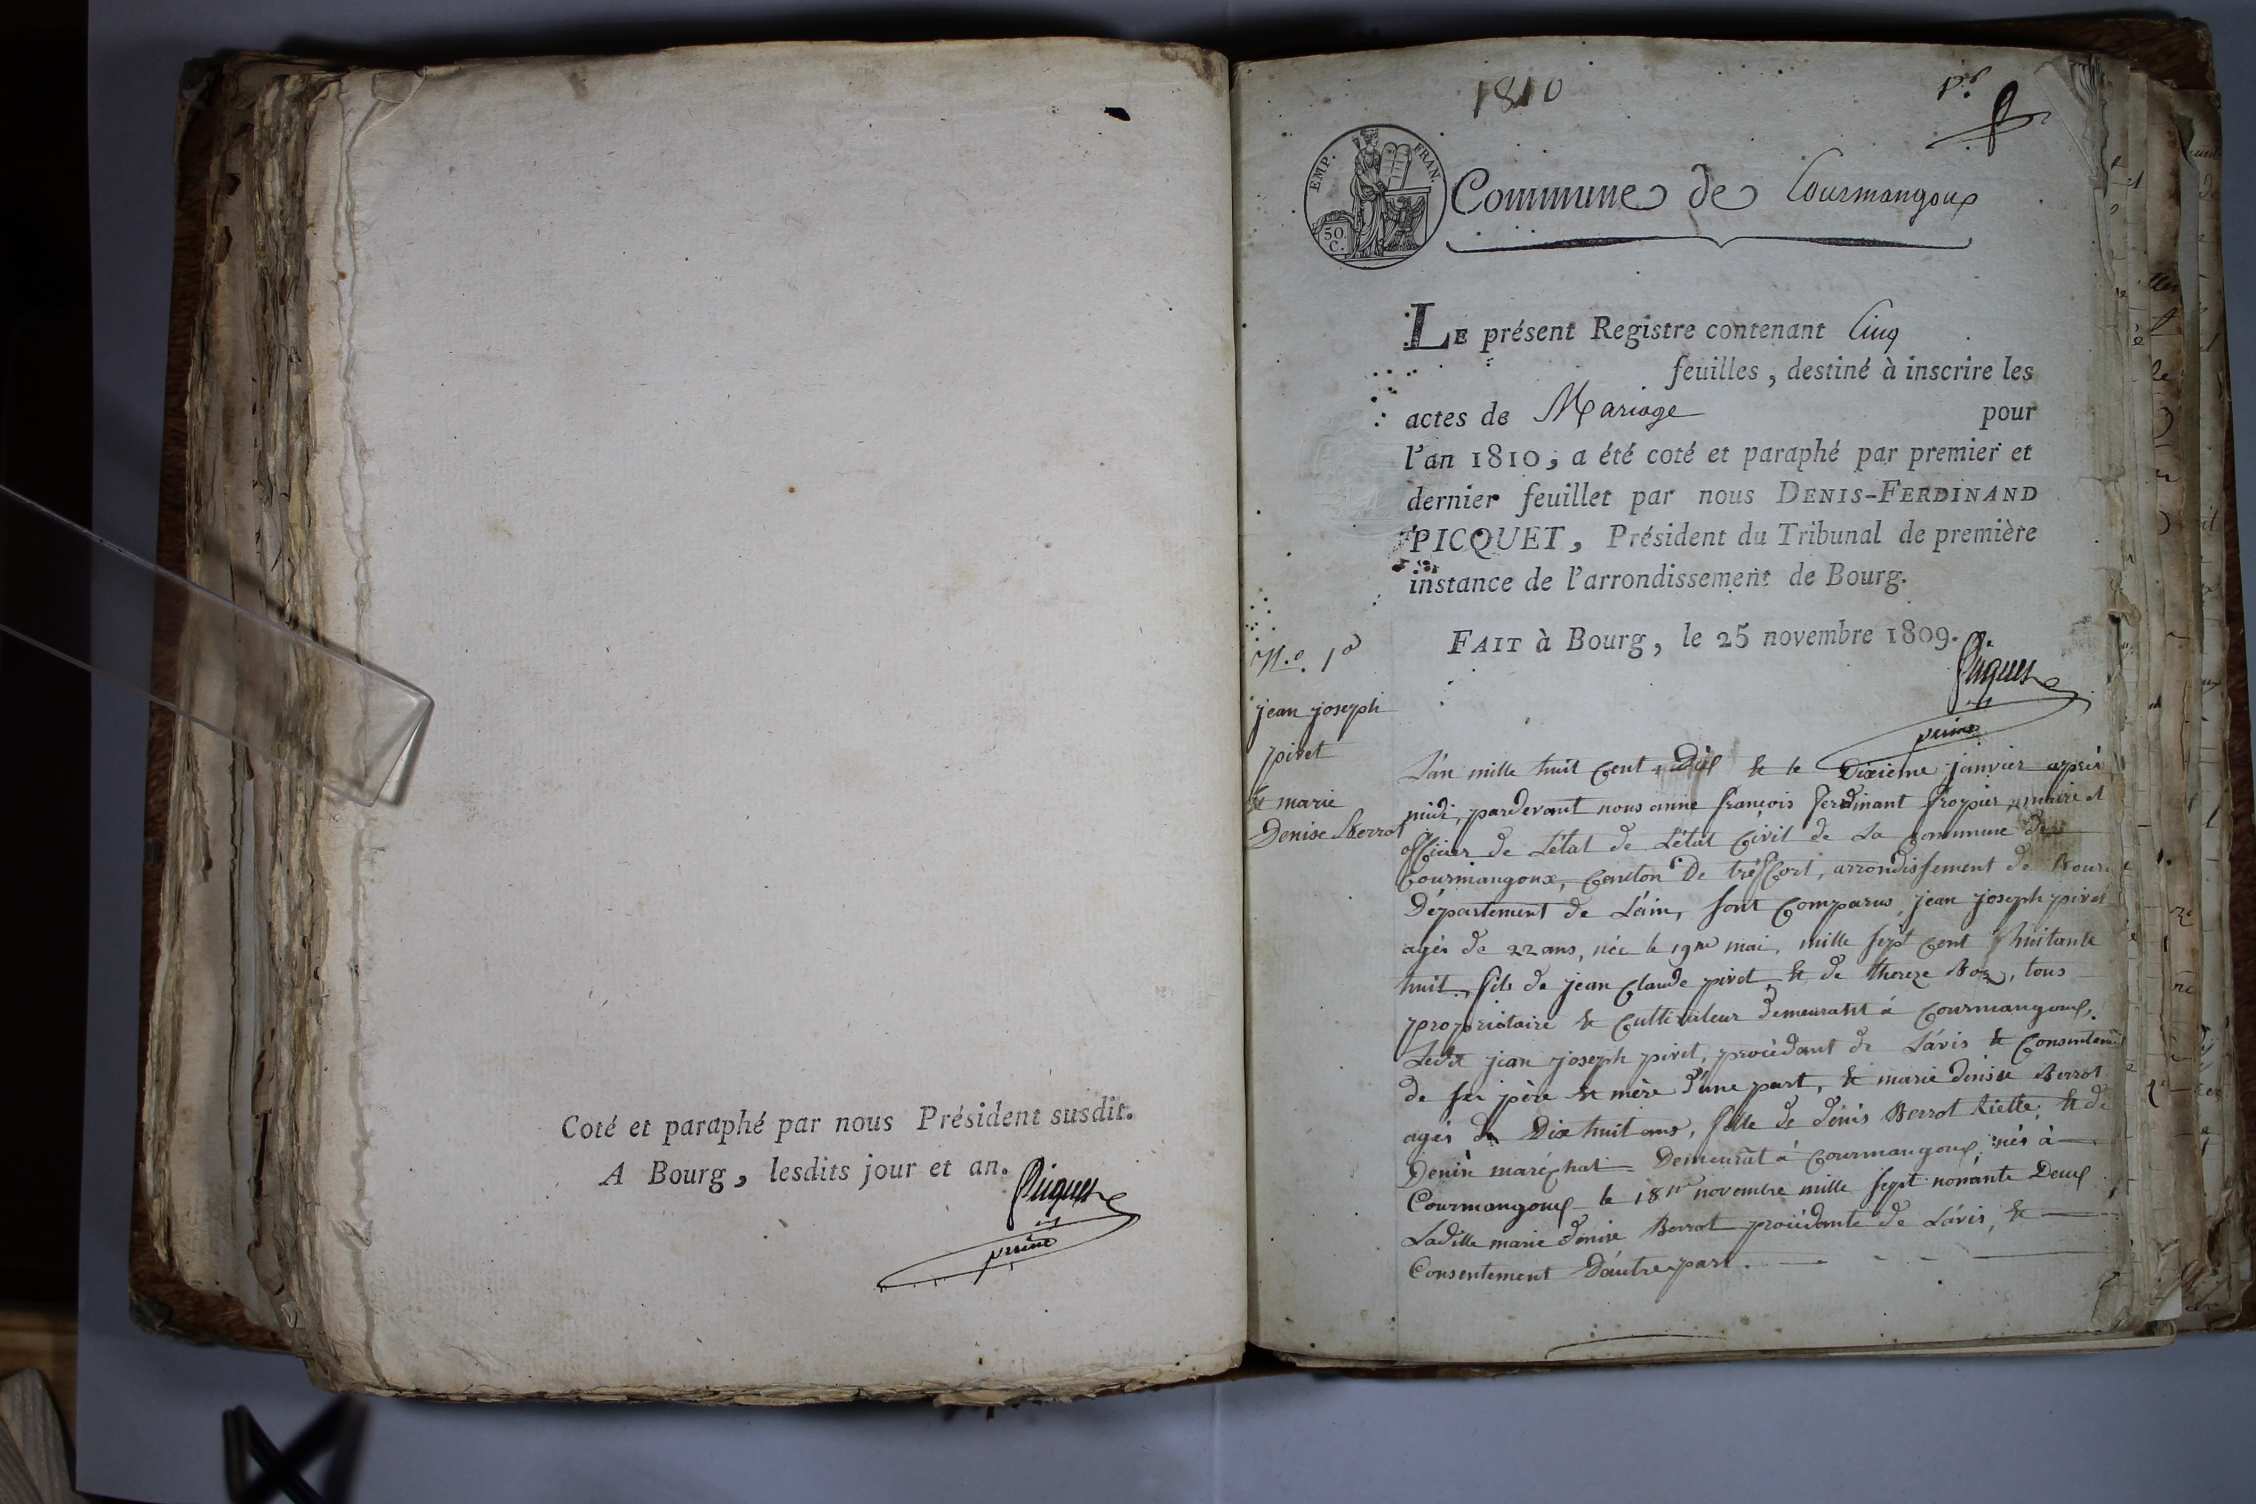 Coté et paraphé par nous Président susdit.
A Bourg, lesdits jour et an.
Picquet
1810
EMP. FRAN.
50.
C.
Commune de Courmangoux
LE présent Registre contenant Cinq
feuilles, destiné à inscrire les
actes de Mariage pour
l'an 1810, a été coté et paraphé par premier et
dernier feuillet par nous DENIS-FERDINAND
PICQUET, Président du Tribunal de première
instance de l'arrondissement de Bourg.
FAIT à Bourg, le 25 novembre 1809.
Picquet
N.o 1o
jean joseph
piret
& marie
Denise Berrot
L'an mille huit Cent dix & le Dixieme janvier après
midi, pardevant nous anne françois ferdinant fropier maire et
officier de L'état de L'état Civil de La Commune de
Courmangoux, Canton De tréffort, arrondissement de Bourg
Département de L'ain, sont Comparus, jean joseph piret
agés de 22 ans, née le 19me mai, mille sept Cent huitante
huit, fils de jean Claude piret, & de thereze Boz, tous
propriétaire & Cultivateur demeurant à Courmangoux,
Ledit jean joseph piret, procédant de L'avis & Consentement
de ses père & mère d'une part, & marie denise Berrot
agés de Dix huit ans, fille de denis Berrot & de
Denise maréchal Demeurat à Courmangoux, nés à
Courmangoux le 18me novembre mille sept nonante Deux
Laditte marie denise Berrot procédante de L'avis, &
Consentement D'autre part.